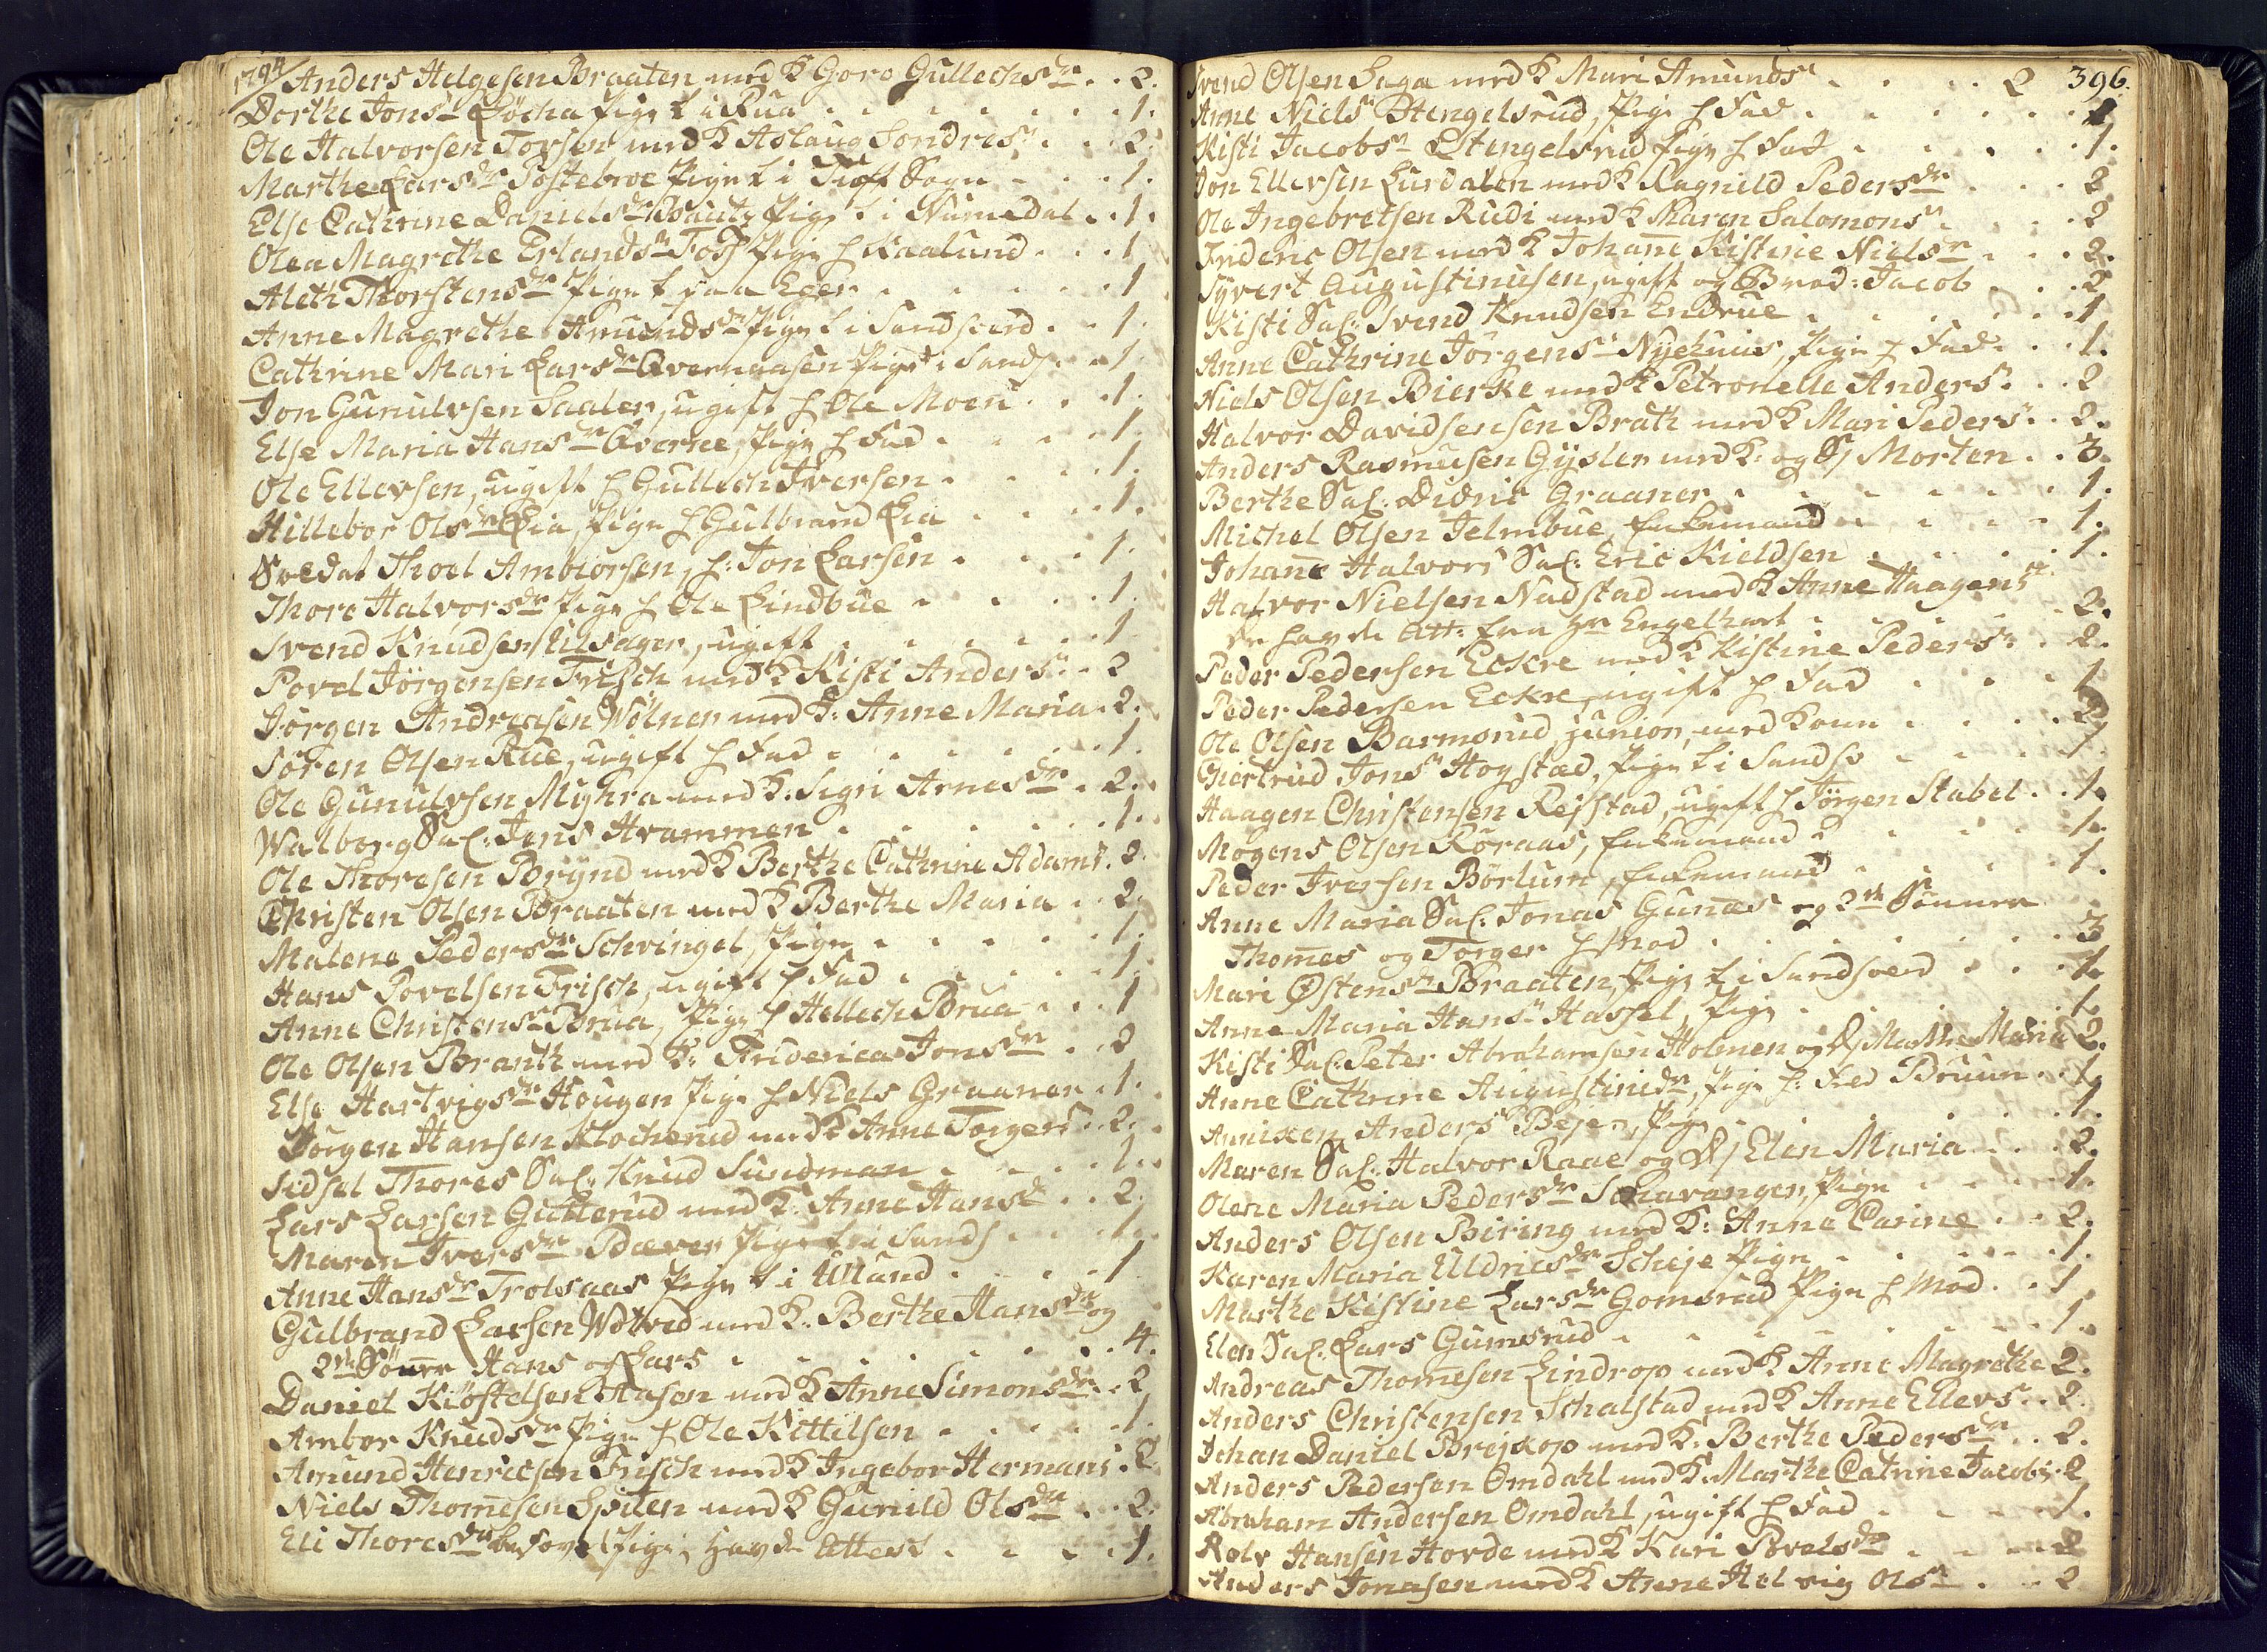 1794/ Anders Helgesen Braaten med K Goro Gullechsdr . . 2.
Dorthe Jonsdr Pige t i Rua . . . . 1.
Ole Halvorsen Torsen med K Aslaug Sondresdr . . 2.
Marthe Larsdr Postebroe Pige t i Sogn . . . 1.
Else Cathrine Danielsdr Pige t i Numedal . . 1.
Olea Magrethe Erlandsdr Foss Pige h Kaalund . . . 1
Aleth Thorstensdr Pige t paa Eger . . . . 1
Anne Magrethe Amundsdr Pige t i Sandsverd . . 1.
Cathrine Mari Larsdr Overnaasen Pige t i Sands . . 1.
Jon Gunulvsen Saaler, ugift h Ole Moen . . 1.
Else Maria Hansdr Qverne, Pige h Fad . . . . 1.
Ole Ellevsen, ugift h Gullech Iversen . . . 1.
Hillebor Olsdr Lia, Pige h Gulbrand Lia . . . 1.
Svedal Thoel Ambiorsen, h: Jon Larsen . . . 1.
Thore Halvorsdr Pige h Ole Lindbue . . . 1.
Svend Knudsen Ulsager, ugift . . . . 1
Povel Jörgensen Frisch med K Kisti Andersdr . . 2
Jörgen Andreasen Wölner med K: Anne Maria . 2.
Sören Olsen Rue, ugift h Fad . . . . 1.
Ole Gunulvsen Myhra med K: Sigri Arnesdr . 2.
Walborg Sal: Jens Hrammen . . . . 1.
Ole Thoresen Brynd med K Berthe Cathrine Adams . 2.
Christen Olsen Braaten med K Berthe Maria . . 2.
Malene Pedersdr Schvingel, Pige . . . . 1.
Hans Povelsen Frisch, ugift h Fad . . . . 1.
Anne Christensdr Brua, Pige h Hellech Brua . . . 1
Ole Olsen Branth med K: Friderica Jonsdr . . 2
Else Hartvigsdr Hougen Pige h Niels Graaner . 1.
Jörgen Hansen Klocherud med K Anne Torgersdr . . 2.
Sidsel Thores Sal: Knud Sundman . . . . 1.
Lars Larsen Gutterud med K: Anne Hansd . . 2.
Maren Iversdr Bæver Pige t i Sands . . . 1.
Anne Hansdr Trolsaas Pige t i Ulland . . . . 1
Gulbrand Larsen Wolred med K. Berthe Hansdr og
2de Sönner Hans og Lars . . . . . 4.
Daniel Kiöstelsen Aasen med K Anne Simonsdr . . 2
Ambor Knudsdr Pige h Ole Kittilsen . . . . 1.
Amund Henricsen Frisch med K Ingebor Hermans . 2
Niels Thomesen Spiten med K Gunild Olsdr . . 2.
Eli Thoresdr Pige, havde Attest . . . . 1.
396.
Svend Olsen Saga med K Mari Amundsdr . . . . 2
Anne Nielsdr Stengelsrud, Pige h Fad . . . . 1
Kisti Jacobsdr Stengelsrud Pige h Fad . . . . 1.
Jon Ellevsen Lurdalen med K Ragnild Pedersdr . . . 2
Ole Ingebretsen Rudi med K Maren Salomonsdr . . . 2
Frideric Olsen med K Johane Kistine Nielsdr . . . 2.
Syvert Augustinusen, ugift og Brod: Jacob . . . 2
Kisti Sal: Svend Knudsen Endrue . . . . 1
Anne Cathrine Jörgensdr Nyehuus, Pige h Fad . . 1.
Niels Olsen Bierke med K Petronelle Andersdr . . 2
Halvor Davidsensen Brath med K Mari Pedersdr . . 2.
Anders Rasmusen Gysler med K: og S Morten . . 3.
Berthe Sal: Didric Graaner . . . . . 1.
Michel Olsen Jelmbue, Enkemand . . . . 1.
Johane Halvors Sal: Eric Kieldsen . . . . 1.
Halvor Nielsen Nadstad med K Anne Haagensdr
de havde Att: fra Hr Engelhart . . . . 2.
Peder Pedersen Eckre med K Kistine Pedersdr . . 2.
Peder Pedersen Eckre, ugift h Fad . . . 1
Ole Olsen Barmsrud junior, med Kone . . . 2
Giertrud Jonsdr Hogstad, Pige t i Sandsv . . . 1
Haagen Christensen Rejstad, ugift h Jörgen Stabel . . 1.
Mogens Olsen Röraas, Enkemand . . . 1.
Peder Iversen Börlum, Enkemand . . . . 1.
Anne Maria Sal: Jonas Gunæs og 2de Sönner
Thomes og Torger h Mod . . . . . 3
Mari Östensdr Braaten, Pige t i Sandsverd . . . 1.
Anne Maria Hansdr Hassel, Pige . . . . 1.
Kisti Sal: Peter Abrahamsen Holmen og D Marthe Maria 2.
Anne Cathrine Augustinidr, Pige h: Fred Bruun . . 1.
Anniken Andersdr Bejer, Pige . . . . 1.
Maren Sal: Halvor Raae og D Elen Maria . . . 2.
Olene Maria Pedersdr Schavanger, Pige . . . 1.
Anders Olsen Biring med K: Anne Carine . . 2.
Karen Maria Uldricsdr Scheje Pige . . . . 1.
Marthe Kistine Larsdr Gomsrud Pige h Mod . . 1.
Elen Sal: Lars Gumsrud . . . . . 1.
Andreas Thomesen Lindrop med K Anne Magrethe 2.
Anders Christensen Schalstad med K Anne Ellevsdr . . 2.
Johan Daniel Brejkop med K: Berthe Pedersdr . . 2.
Anders Pedersen Omdahl med K. Marthe Catrine Jacobs . 2
Abraham Andersen Omdahl, ugift h Fad . . . . 1.
Rolv Hansen Hovde med K Kari Povelsdr . . . 2
Anders Jonasen med K Anne Helvig Olsdr . . . 2